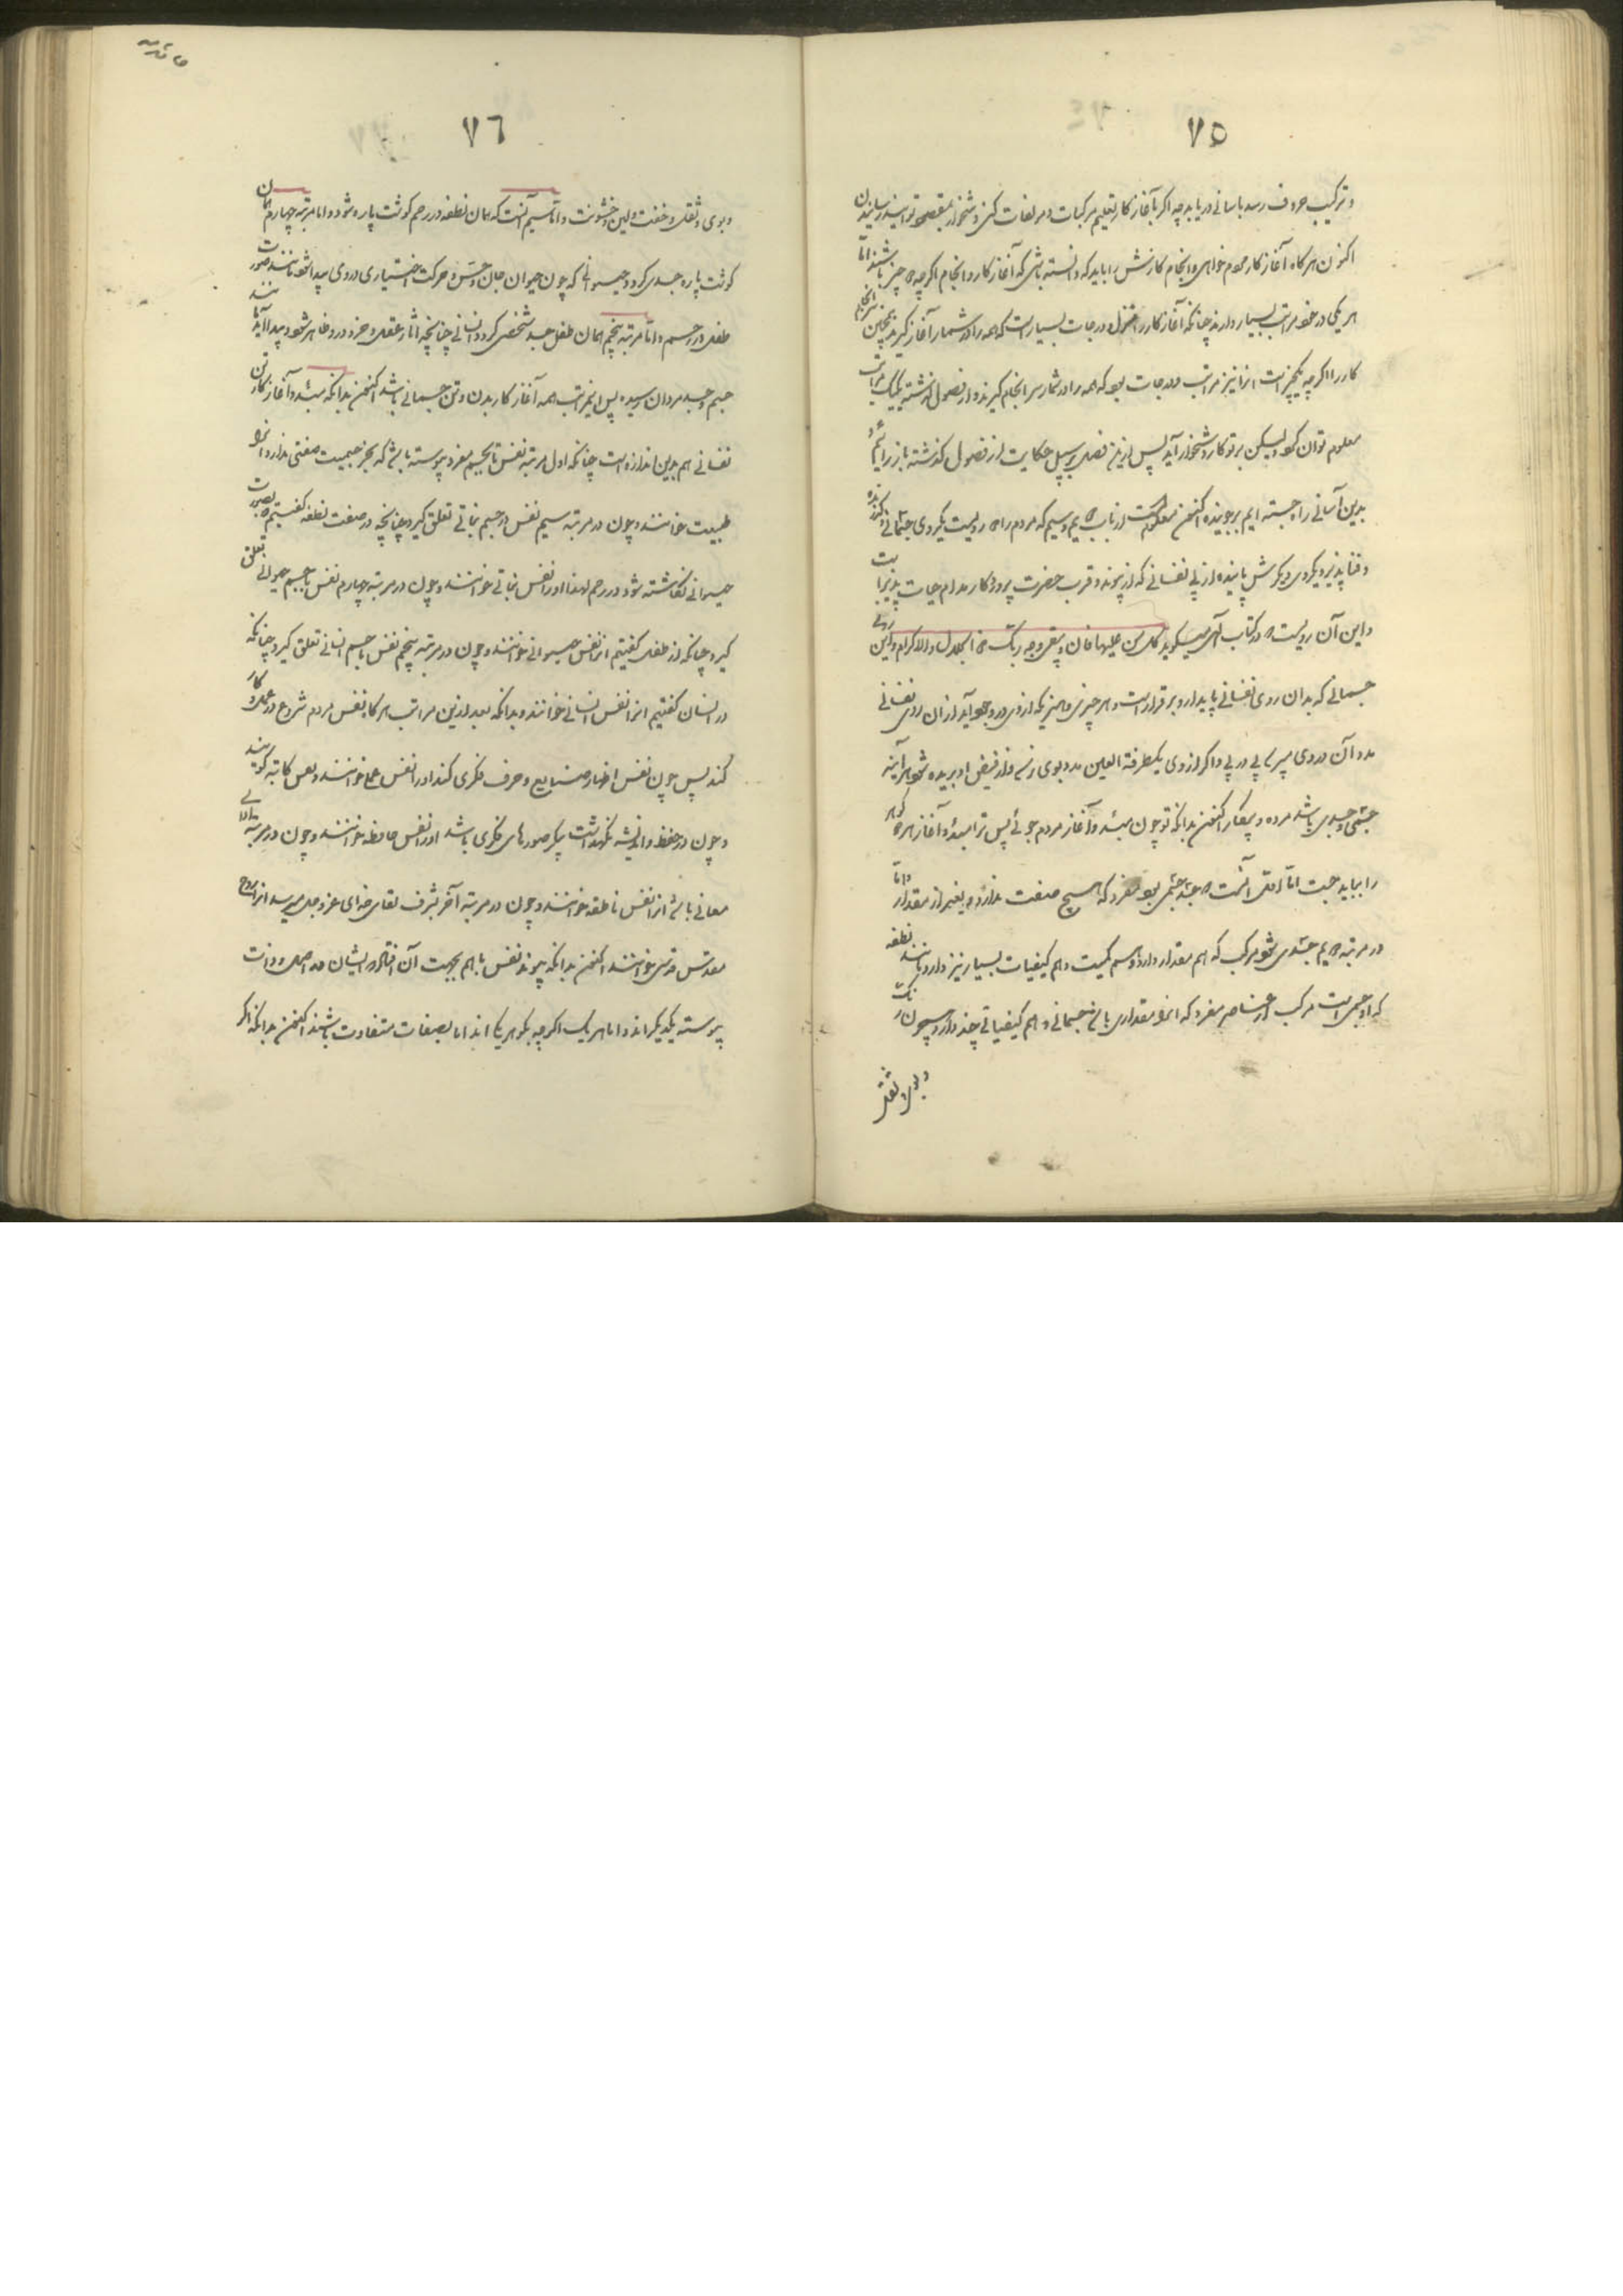 ٧٥
و ترکیب حروف رسد باسانی دریابد چه اکر بآغاز کار تعلیم مرکبات و مولفات کنی دشخوار بمقصود تواند رسیدن
اکنون هر کاه آغاز کار مردم خواهی و انجام کارش را باید که دانسته باشی که آغاز کار و انجام اکرچه دو چیز باشند اما
هر یکی در خود مراتب بسیار دارند چنانکه آغاز کار را درجات بسیار است که همه را در شمار آغاز کیرند همچنین سرانجام
کار را اکرچه یکچیز است انرا نیز مراتب و درجات بود که همه را در شمار سرانجام کیرند و از فصول کذشته یکیک مراتب
معلوم توان کرد ولیکن بر تو کار دشخوار آید پس ازین فصل بر سبیل حکایت از فصول کذشته باز رانیم و
بدین آسانی راه جسته ایم بر جوینده اکنون معلوم است از باب دویم و سیم که مردم را دو رویست یکروی جثمانی کردنده
و فنا پذیر و یکروی دیکرش پاینده از پی نفسانی که از پیوند و قرب حضرت پروردکار مدام حیات پذیر است
و این آن رویست که در کتاب آلهی میکوید کل من علیها فان و یبقی وجه ربک ذو الجلال والاکرام و این روی
جسمانی که بدان روی نفسانی پایدار و برقرار است و هر چیزی و هنریکه از وی در وجود آید از ان روی نفسانی
مدد آن در وی پیاپی در پی و اکر از وی یکطرفة العین مدد بوی نرسد و از فیض او بریده شود هر آینه
جثمی و جسدی باشد مرده و بیکار اکنون بدانکه تو چون مبدء و آغاز مردم جوئی پس ترا مبدء و آغاز هر دو کوهر
را بباید جست اما اولی آنست که جسد جثمی بود مفرد که هیچ صفت ندارد بغیر از مقدار و اما
در مرتبه دویم جسدی شود مرکب که هم مقدار دارد و هم کمیت و هم کیفیات بسیار نیز دارد مانند نطفه
که او جسمی است مرکب از عناصر مفرد که انرا مقداری باشد جسمانی و هم کیفیاتی چند دارد همچون رنک
و بوی و ثقل
٧٦
و بوی و ثقل و خفت ولین و خشونت و اما سیم آنست که همان نطفه در رحم کوشت پاره شود و اما مرتبه چهارم همان
کوشت پاره جسدی کردد حیوانی که چون حیوان جان و حس و حرکت اختیاری در وی پیدا شود مانند صورت
طفل در رحم و اما مرتبه پنجم همان طفل جسد شخصی کردد انسانی چنانچه اثار عقل و خرد در و ظاهر شود و پیدا آید مانند
جسم و جسد مردان رسیده پس اینمراتب همه آغاز کار بدن و تن جسمانی باشد اکنون بدانکه مبدء و آغاز کار تن
نفسانی هم بدین اندازه است چنانکه اول مرتبه نفس با جسم مفرد پیوسته باشد که بجز جسمیت صفتی ندارد انرا
طبیعت خوانند و چون در مرتبه سیم نفس در جسم نباتی تعلق کیرد چنانچه در صفت نطفه کفتیم که بصورت
حیوانی نکاشته شود در رحم او را نفس نباتی خوانند و چون در مرتبه چهارم نفس با جسم حیوانی تعلق
کیرد چنانکه از طفل کفتیم انرا نفس حیوانی خوانند و چون در مرتبه پنجم نفس با جسم انسانی تعلق کیرد چنانکه
در انسان کفتیم انرا نفس انسانی خوانند و بدانکه بعد ازین مراتب هر کاه نفس مردم شروع در عمل و کار
کند پس چون نفس اظهار صنایع و حرف فکری کند او را نفس عملی خوانند و نفس کاتبه کویند
و چون در حفظ و اندیشه نکهداشت پیکر صورهای فکری باشد او را نفس حافظه خوانند و چون در مرتبه بالای
معانی باشد انرا نفس ناطقه خوانند و چون در مرتبه آخر بشرف لقای خدای عز و جل میرسد انرا روح
مقدس قدسی خوانند اکنون بدانکه پیوند نفس با هم بجهت آن افتاد که ایشان در اصل و ذات
پیوسته یکدیکراند و اما هر یک اکرچه بکوهر یکی اند اما بصفات متفاوت باشند اکنون بدانکه اکر